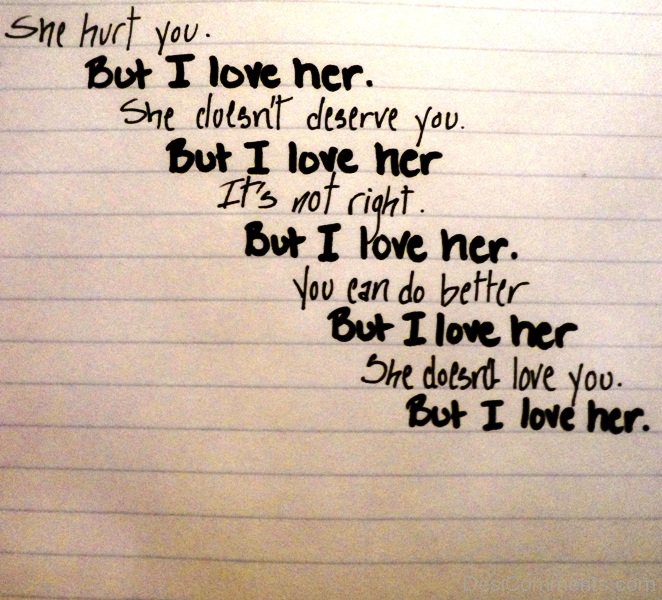 She hurt you.
But I love her.
She doesn't deserve you.
But I love her
It's not right.
But I love her.
You can do better
But I love her
She doesn't love you.
But I love her.
DesiComments.com